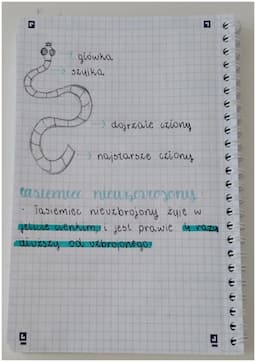 główka
szyjka
dojrzałe człony
najstarsze człony
tasiemiec nieuzbrojony
- Tasiemiec nieuzbrojony żyje w
jelicie cienkim, i jest prawie 4 razy
dłuższy od uzbrojonego.